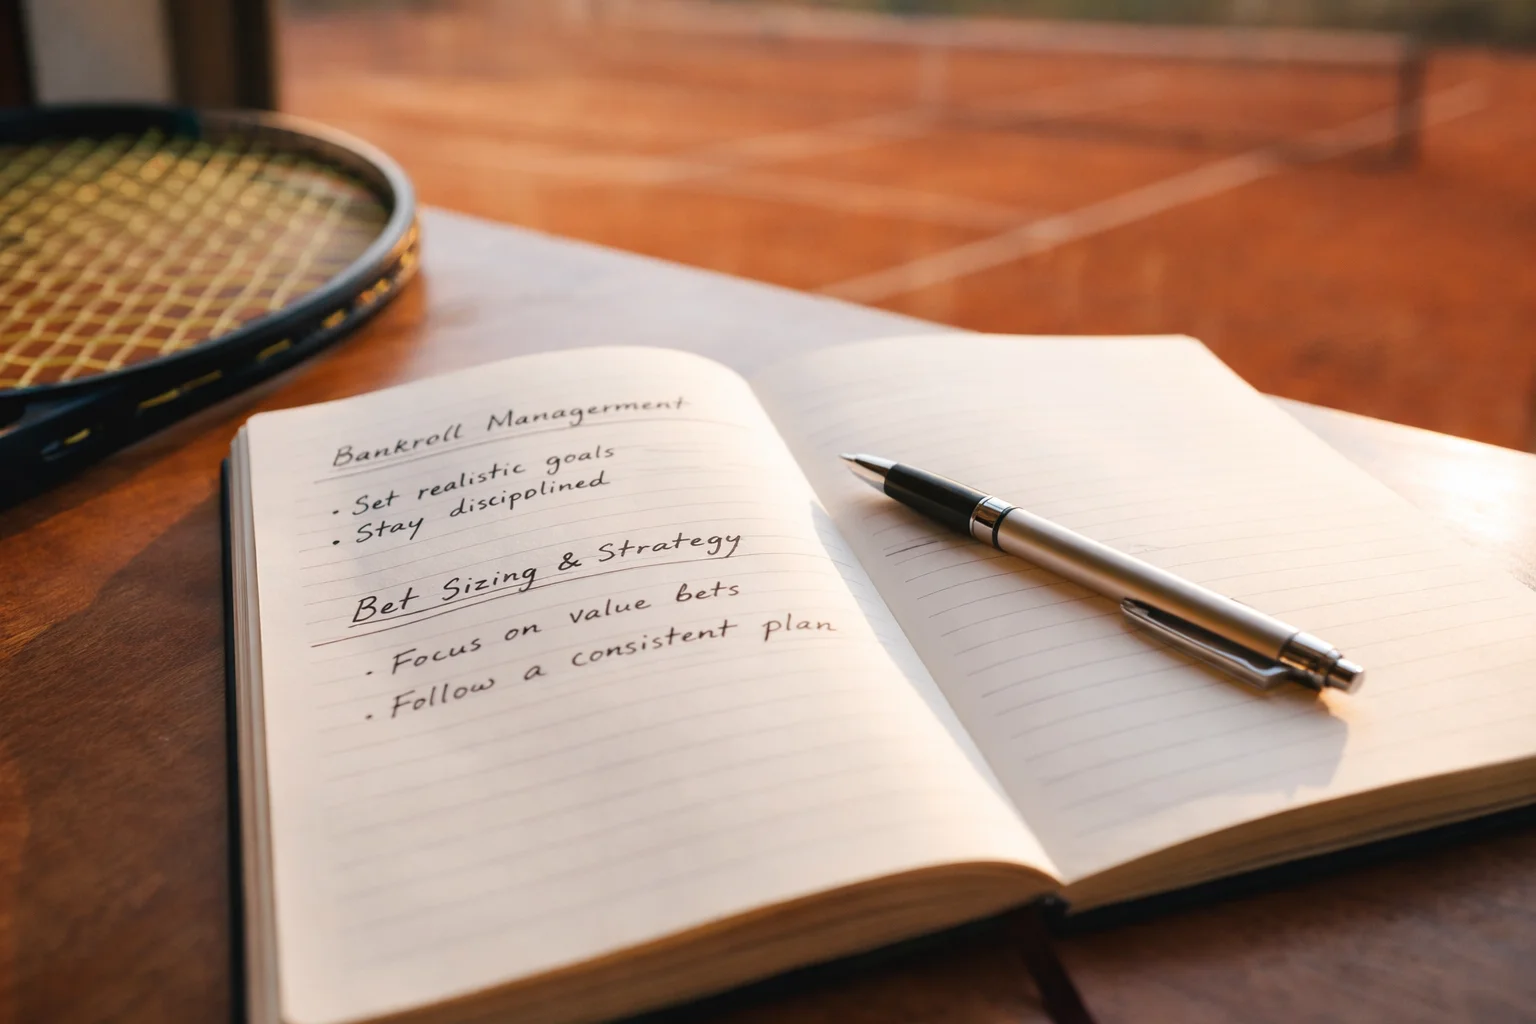 Bankroll Managerment
· Set realistic goals
· Stay discipolined
Bet Sizing & Strategy
· Focus on value bets
· Follow a consistent plan